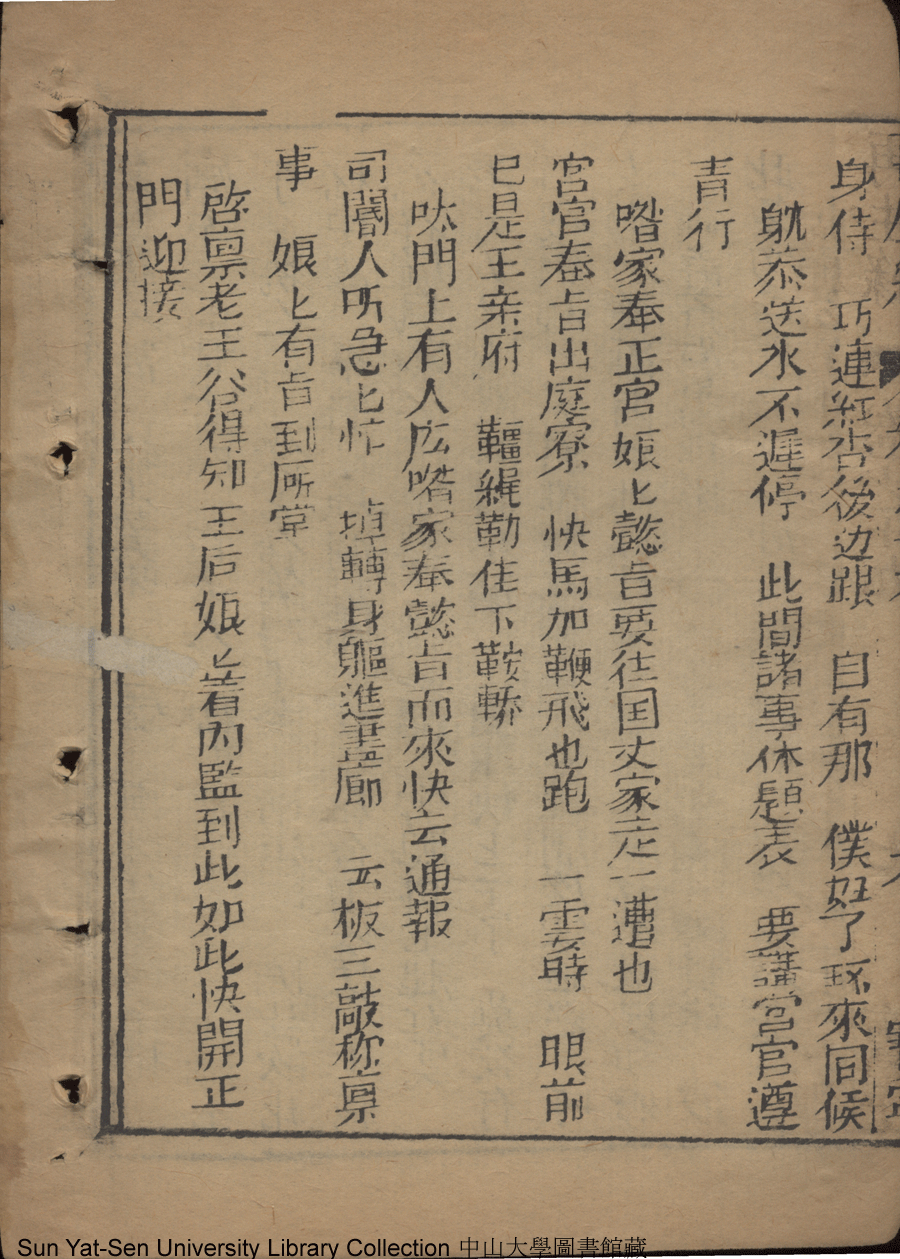 身侍　巧連紅杏後边跟　自有那　僕好了环來同候
躭茶送水不遲停　此間諸事休題表　要講宫官遵
青行
喒家奉正宫娘匕懿旨要往国丈家走一遭也
宫官奉旨出庭寮　快馬加鞭飛也跑　一霎時　眼前
已是王亲府　韁繩勒住下鞍轎
呔門上有人広喒家奉懿旨而來快去通報
司閽人所急匕忙　掉轉身軀進畫廊　云板三敲称禀
事　娘匕有旨到㕔堂
啓禀老王爷得知王后娘匕着內監到此如此快開正
門迎接
Sun Yat-Sen University Library Collection 中山大學圖書館藏